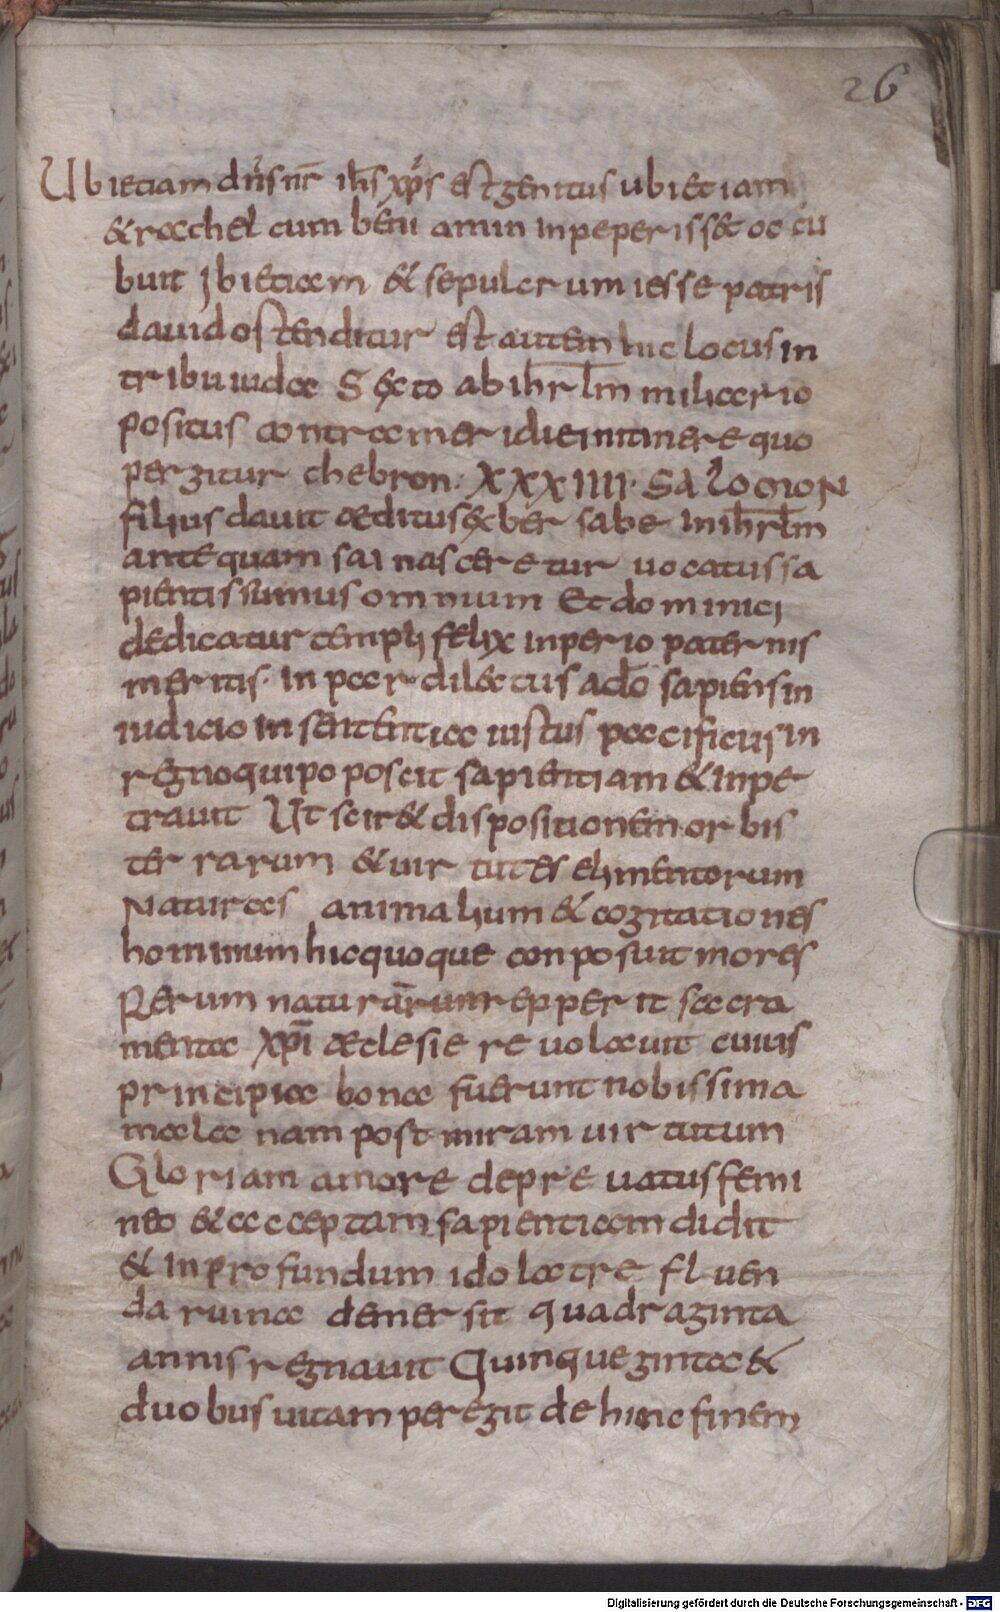 26
Ubietiam dn̅s nr̅ ih̅s xp̅s est genitus ubi etiam
& rachel cum beni amin inpeperiss& ocu
buit Ibietiam & sepulcrum iesse patris
dauid ostenditur est autem hic locus in
tribu iudae Sexto ab ihr̅l̅m miliario
positus contra meridie in itinere quo
pergitur chebron: XXXIIII. SALOMON
filius dauit aeditus ex bersabe in ihr̅l̅m
ante quam sai nasceretur uocatus sa
pientissimus omnium Et dominici
dedicatur templi felix inperio paternis
meritis. in pace dilectus a do̅ sapiens in
iudicio in sententia iustus pacificus in
regno qui poposcit sapientiam & inpe
trauit Ut scir& dispositionem orbis
ter rarum & uirtutes elimentorum
Naturas animalium & cogitationes
hominum hic quoque conposuit mores
Rerum naturarum repperit sacra
menta xp̅i aeclesie reuolauit cuius
principia bona fuerunt nobissima
mala nam post miram uirtutum
Gloriam amore depreuatus femi
neo & acceptam sapientiam didit
& in profundum idolatre fluen
da ruina demersit quadraginta
annis regnauit Quinqueginta &
duobus uitam peregit dehinc finem
Digitalisierung gefördert durch die Deutsche Forschungsgemeinschaft - DFG